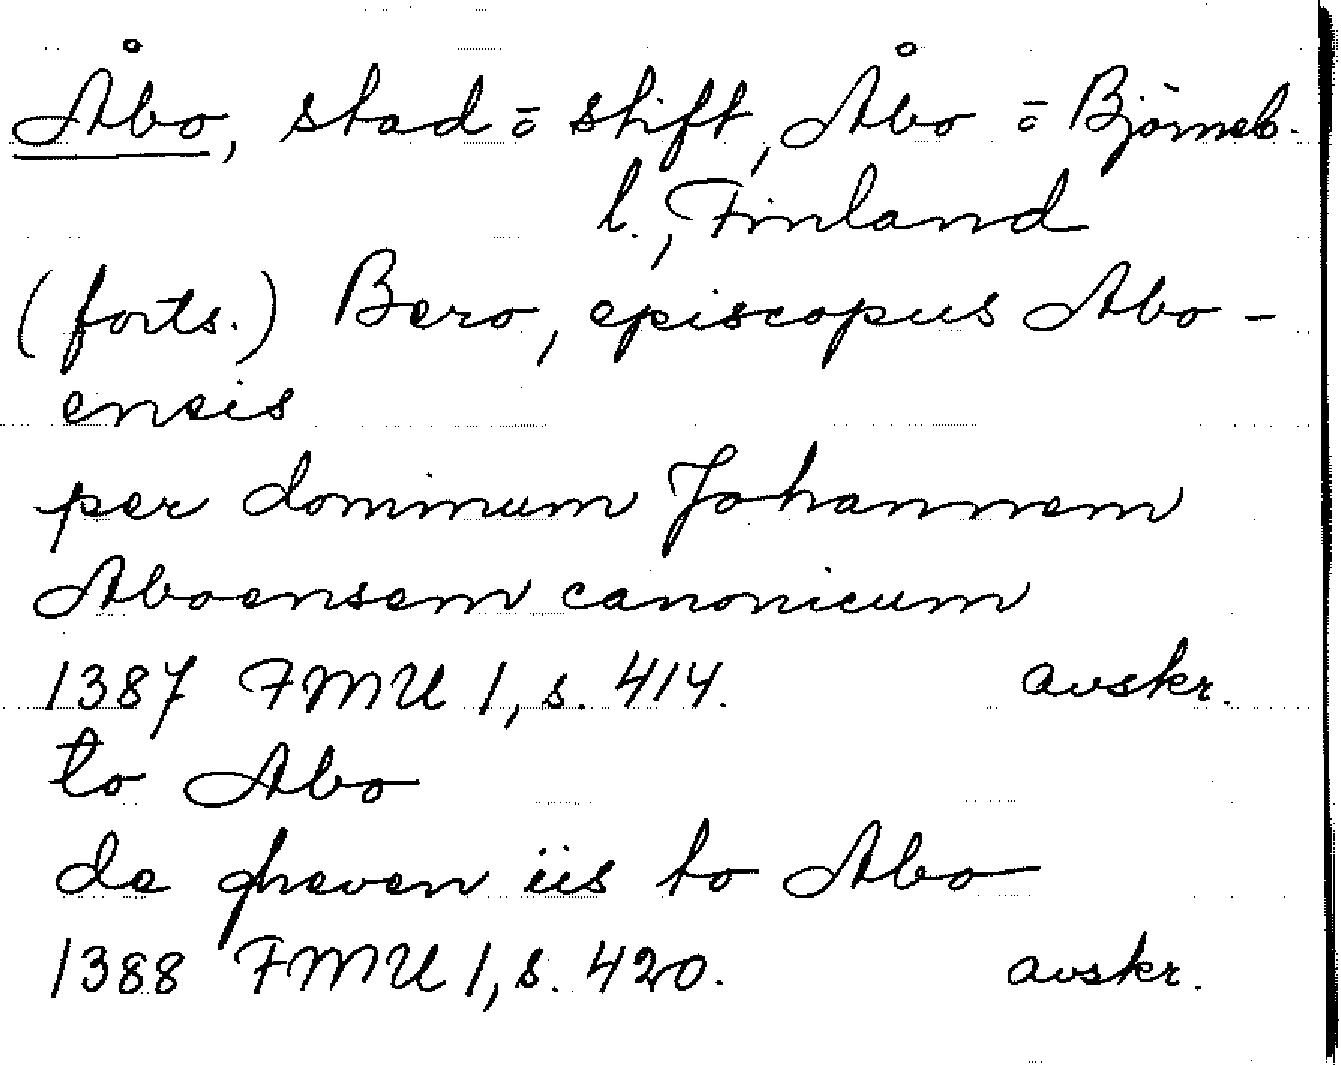 Åbo, stad = o stift, Åbo = o Björneb.
l., Finland
(forts.) Bero, episcopus Abo-
ensis
per dominum Johannem
Aboensem canonicum
1387 FMU 1, s. 414. avskr.
to Abo
de gheven iis to Abo
1388 FMU 1, s. 420. avskr.